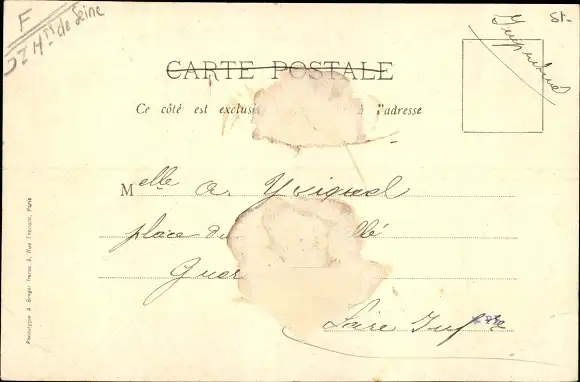 F
92 Hts de Seine
St-
Imprimé
CARTE POSTALE
Ce côté est exclusi à l'adresse
Melle A. Viguel
place du llé
Guer
Loire Infre
Phototypie A. Breger frères, 9, Rue Thénard, Paris